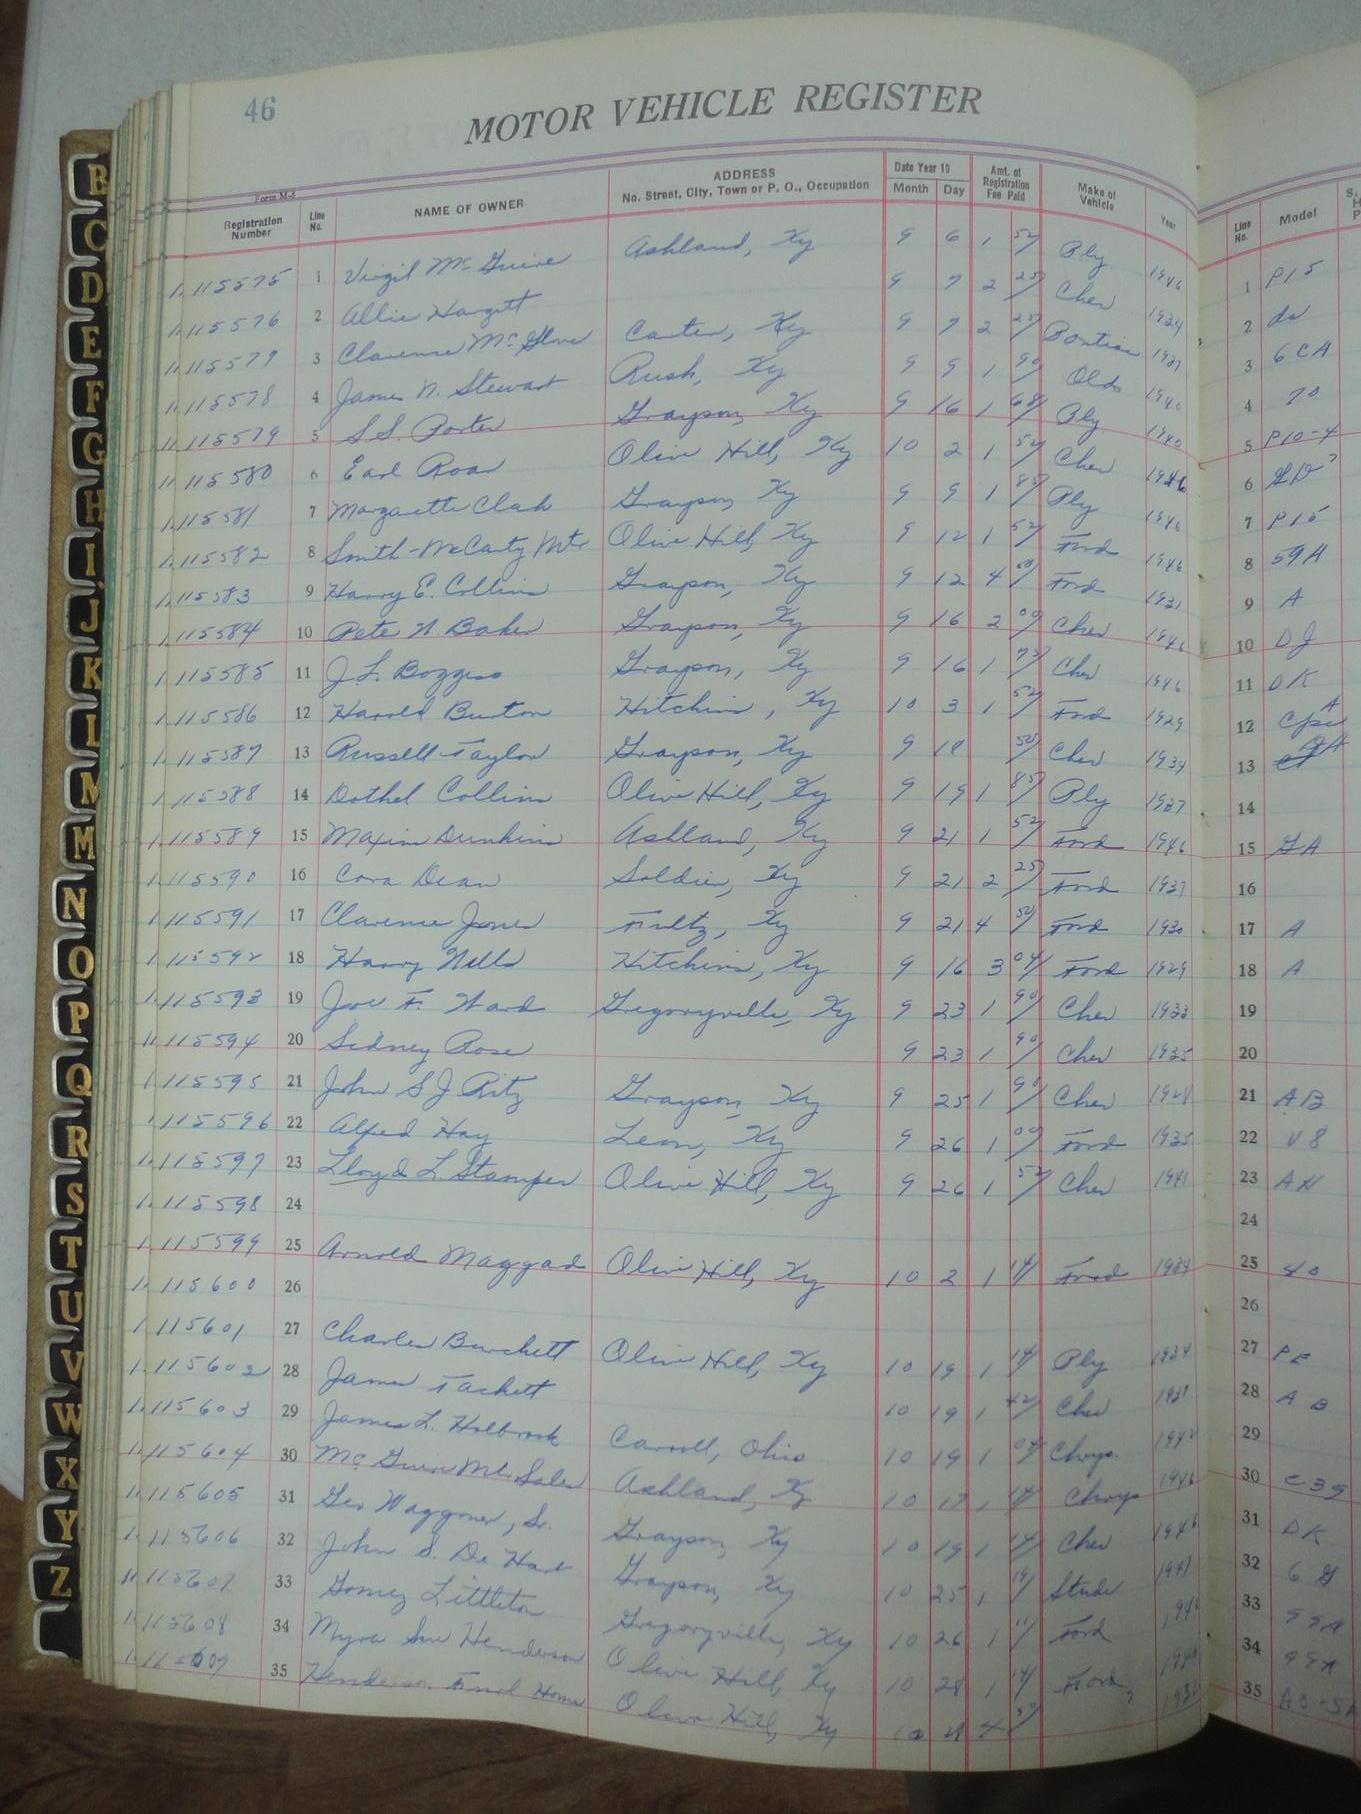 46
MOTOR VEHICLE REGISTER
Form M-5
Registration Number Line No. NAME OF OWNER ADDRESS No. Street, City, Town or P. O., Occupation Date Year 19 Month Day Amt. of Registration Fee Paid Make of Vehicle Year Line No. Model
115575 1 Virgil McGuire Ashland, Ky 9 6 1 52 Ply 1946 1 P15
115576 2 Allie Hargett 9 7 2 25 Chev 1934 2 do
115577 3 Clarence McGlone Carter, Ky 9 7 2 25 Pontiac 1937 3 6CA
115578 4 James N. Stewart Rush, Ky 9 9 1 90 Olds 1940 4 70
115579 5 S.S. Porter Grayson, Ky 9 16 1 68 Ply 1940 5 P10-4
115580 6 Earl Roar Olive Hill, Ky 10 2 1 52 Chev 1946 6
115581 7 Margarette Clark Grayson, Ky 9 9 1 85 Ply 1946 7 P15
115582 8 Smith-McCarty Mtr Olive Hill, Ky 9 12 1 52 Ford 1946 8 59A
115583 9 Harry E. Collins Grayson, Ky 9 12 4 50 Ford 1931 9 A
115584 10 Pete N. Baker Grayson, Ky 9 16 2 09 Chev 1946 10 DJ
115585 11 J. L. Boggess Grayson, Ky 9 16 1 Chev 1946 11 DK
115586 12 Harold Burton Hitchins, Ky 10 3 1 52 Ford 1929 12 Cpe A
115587 13 Russell Taylor Grayson, Ky 9 18 50 Chev 1934 13
115588 14 Dothel Collins Olive Hill, Ky 9 19 1 85 Ply 1937 14
115589 15 Maxine Dunkins Ashland, Ky 9 21 1 52 Ford 1946 15 GA
115590 16 Cora Dean Soldier, Ky 9 21 2 25 Ford 1937 16
115591 17 Clarence Jones Fultz, Ky 9 21 4 50 Ford 1930 17 A
115592 18 Harry Wells Hitchins, Ky 9 16 3 04 Ford 1929 18 A
115593 19 Joe F. Ward Gregoryville, Ky 9 23 1 90 Chev 1933 19
115594 20 Sidney Rose 9 23 1 90 Chev 1935 20
115595 21 John S J Ritz Grayson, Ky 9 25 1 90 Chev 1928 21 AB
115596 22 Alfred Hay Leon, Ky 9 26 1 00 Ford 1935 22 V8
115597 23 Lloyd L. Stamper Olive Hill, Ky 9 26 1 52 Chev 1941 23 AH
115598 24 24
115599 25 Arnold Maggard Olive Hill, Ky 10 2 1 14 Ford 1934 25 40
115600 26 26
115601 27 Charles Burchett Olive Hill, Ky 10 19 1 14 Ply 1934 27 PE
115602 28 James Tackett 10 19 1 42 Chev 28
115603 29 James L. Holbrook Carroll, Ohio 10 19 1 04 Chrys. 1942 29
115604 30 McGuire Mtr Sales Ashland, Ky 10 17 1 14 Chrys 1946 30 C39
115605 31 Geo Waggoner, Sr. Grayson, Ky 10 19 1 14 Chev 1946 31 DK
115606 32 John S. De Hart Grayson, Ky 10 25 1 14 Stude 1947 32 6 G
115607 33 Gomez Littleton Gregoryville, Ky 10 26 1 Ford 33
115608 34 Myra Sue Henderson Olive Hill, Ky 10 28 1 14 Ford 34
35 Henderson Funl Home Olive Hill, Ky 10 4 35
B
C
D
E
F
G
H
I
J
K
L
M
M
N
O
P
Q
R
S
T
U
V
W
X
Y
Z